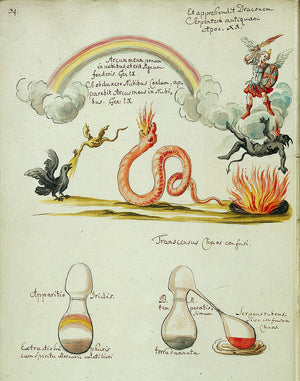 34.
Et apprehendit Draconem
Serpentem antiquum
Apoc. XX.
Arcum meum ponam
in nubibus et erit signum
foederis. Gen: IX
Nubibus Coelum, ap,
parebit Arcus meus in Nubi
bus. Gen: IX
Transcensus Chaos confusi.
Apparitio Iridis.
Extractio
cum Spiritu Mercurii
B. M.
tem peratis,
sima
terra damnata
Serpens rubens,
sive confusum
Chaos